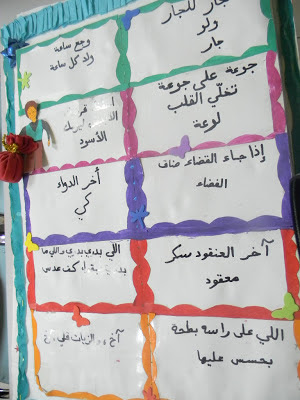 جار للجار
ولو
جار
وجع ساعة
ولا كل ساعة
جوعة على جوعة
تخلّي القلب
لوعة
الأسود
إذا جاء القضاء ضاق
الفضاء
آخر الدواء
كي
آخر العنقود سكر
معقود
اللي بدري بدري واللي ما
كف عدس
اللي على راسه بطحة
بحسس عليها